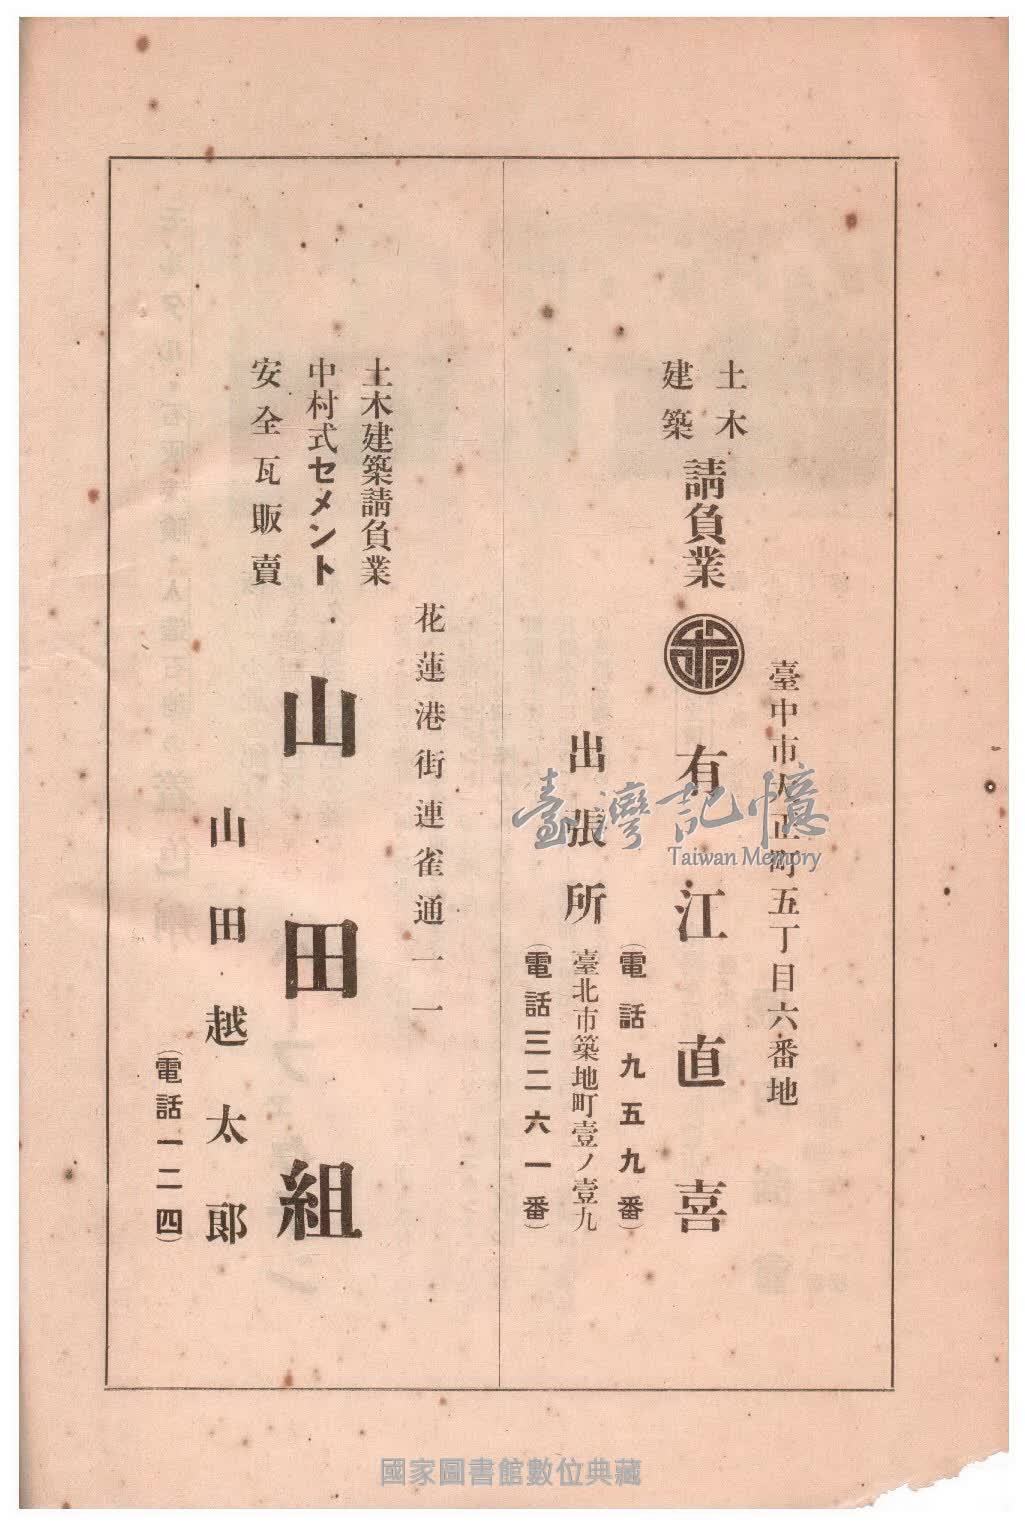 臺中市大正町五丁目六番地
土木
建築
請負業
有江直喜
(電話九五九番)
出張所
臺北市築地町壹ノ壹九
(電話三二六一番)
花蓮港街連雀通一一
土木建築請負業
中村式セメント
安全瓦販賣
山田組
山田越太郎
(電話一二四)
臺灣記憶
Taiwan Memory
國家圖書館數位典藏